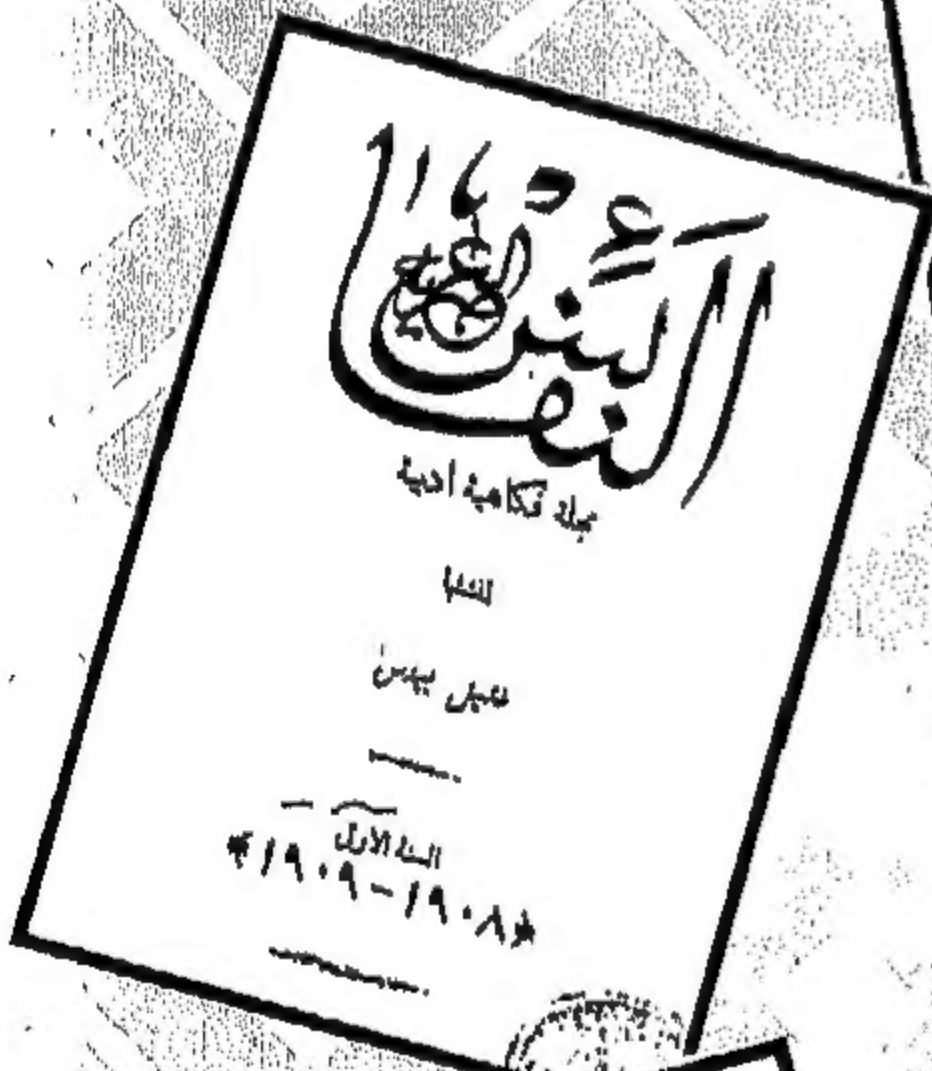 النفائس
مجلة فكاهية أدبية
لمنشئها
خليل بيدس
السنة الأولى
١٩٠٨ - ١٩٠٩